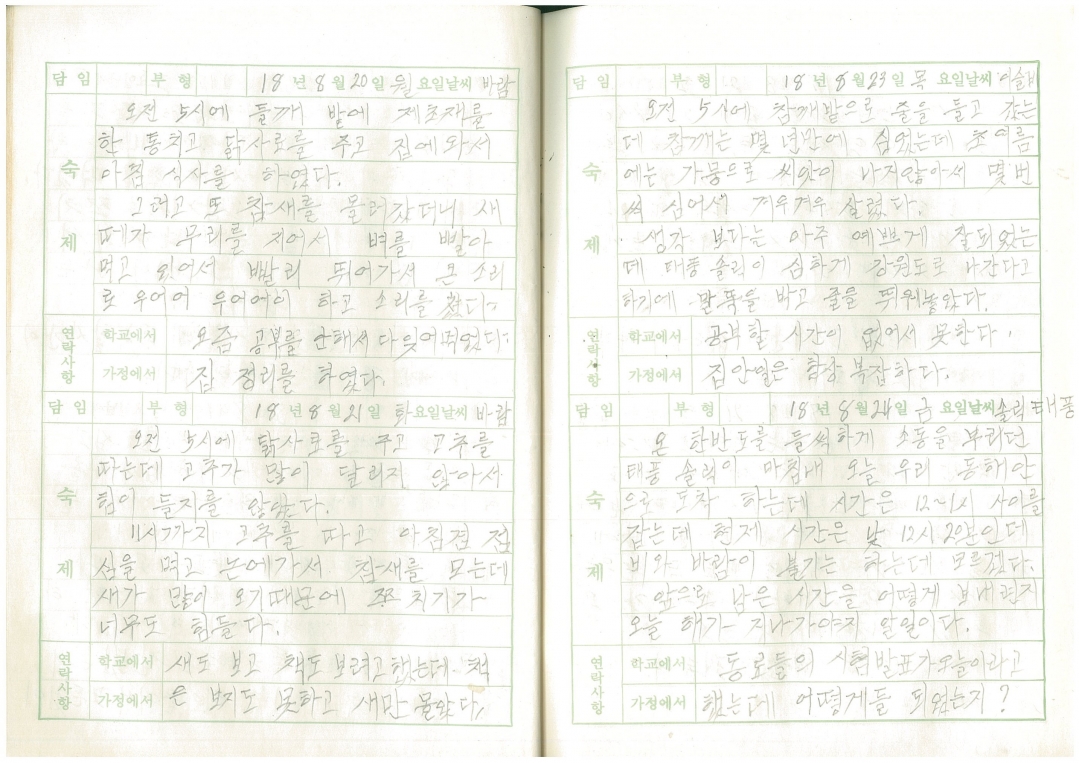 담 임 부 형 18 년 8 월 20 일 월 요일날씨 바람
오전 5시에 들깨 밭에 제초재를
한 통치고 닭사료를 주고 집에와서
숙
아침 식사를 하였다.
그러고 또 참새를 몰러갔더니 새
제
떼가 무리를 지어서 벼를 빨아
먹고 있어서 빨리 뛰어가서 큰 소리
로 우어어 우어어이 하고 소리를 쳤다.
연락사항
학교에서 요즘 공부를 안해서 다 잊어먹었다.
가정에서 집 정리를 하였다.
담 임 부 형 18 년 8 월 21 일 화 요일날씨 바람
오전 5시에 닭사료를 주고 고추를
따는데 고추가 많이 달리지 않아서
숙
힘이 들지를 않았다.
11시까지 고추를 따고 아침겸 점
제
심을 먹고 논에가서 참새를 모는데
새가 많이 오기때문에 쫓치기가
너무도 힘들다.
연락사항
학교에서 새도 보고 책도 보려고했는데 책
가정에서 은 보지도 못하고 새만 몰았다.
담 임 부 형 18 년 8 월 23 일 목 요일날씨 이슬비
오전 5시에 참깨밭으로 줄을 들고 갔는
데 참깨는 몇 년만에 심었는데 초여름
숙
에는 가뭄으로 씨앗이 나지않아서 몇번
씩 심어서 겨우겨우 살렸다.
제
생각 보다는 아주 예쁘게 잘되었는
데 태풍 솔릭이 심하게 강원도로 나간다고
하기에 말뚝을 박고 줄을 띄워놓았다.
연락사항
학교에서 공부할 시간이 없어서 못한다.
가정에서 집안일은 항상 복잡하다.
담 임 부 형 18 년 8 월 24 일 금 요일날씨 솔릭태풍
온 한반도를 들썩하게 소동을 부리던
태풍 솔릭이 마침내 오늘 우리 동해안
숙
으로 도착 하는데 시간은 12~1시 사이를
잡는데 현제 시간은 낮 12시 20분인데
제
비와 바람이 불기는 하는데 모르겠다.
앞으로 남은 시간을 어떻게 보내련지
오늘 해가 지나가야지 알일이다.
연락사항
학교에서 동료들의 시험발표가오늘이라고
가정에서 했는데 어떻게들 되었는지?